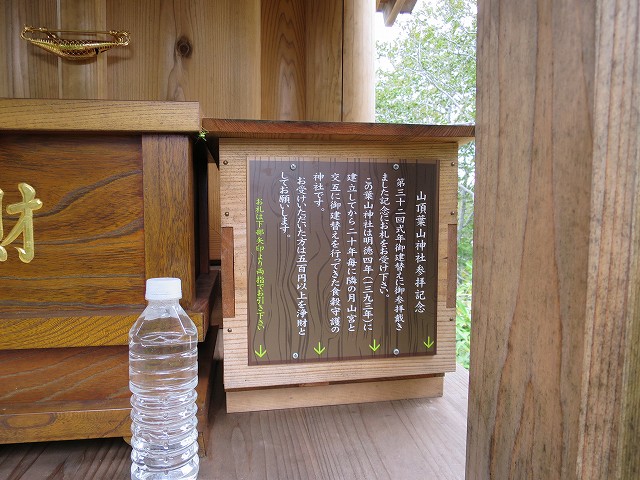 山頂葉山神社参拝記念
第三十二回式年御建替えに御参拝戴き
ました記念にお札をお受け下さい。
この葉山神社は明徳四年（一三九三年）に
建立してから二十年毎に隣の月山宮と
交互に御建替えを行ってきた食穀守護の
神社です。
お受けいただいた方は五百円以上を浄財と
してお願いします。
お札は下部矢印より両指でお引き下さい
財